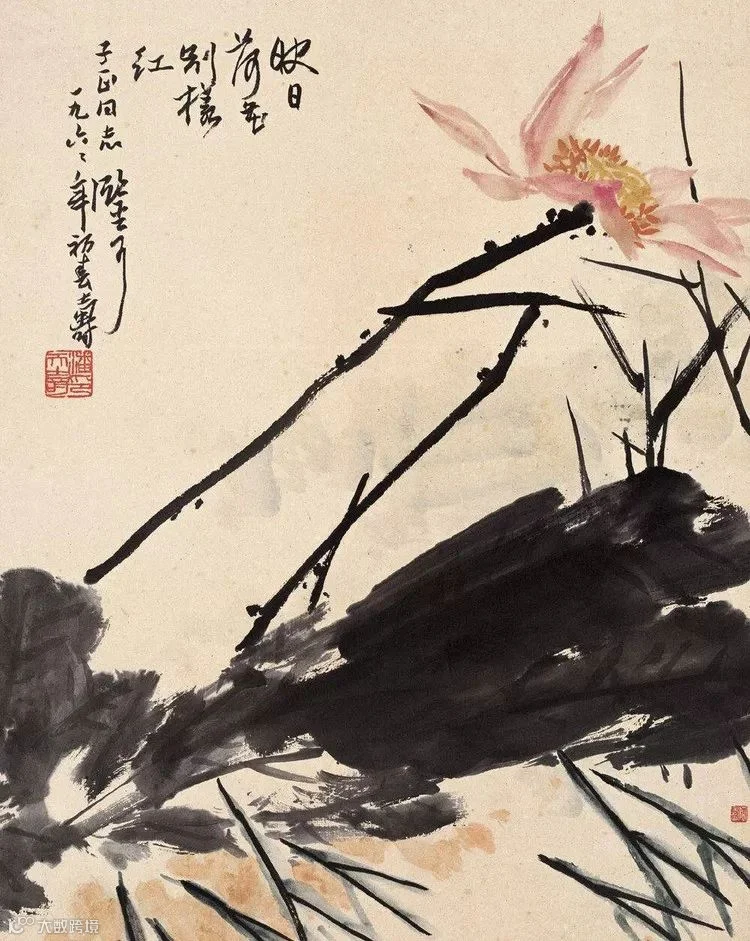 映日
荷花
别樣
红
子正同志
一九六二年初春寿
大数跨境